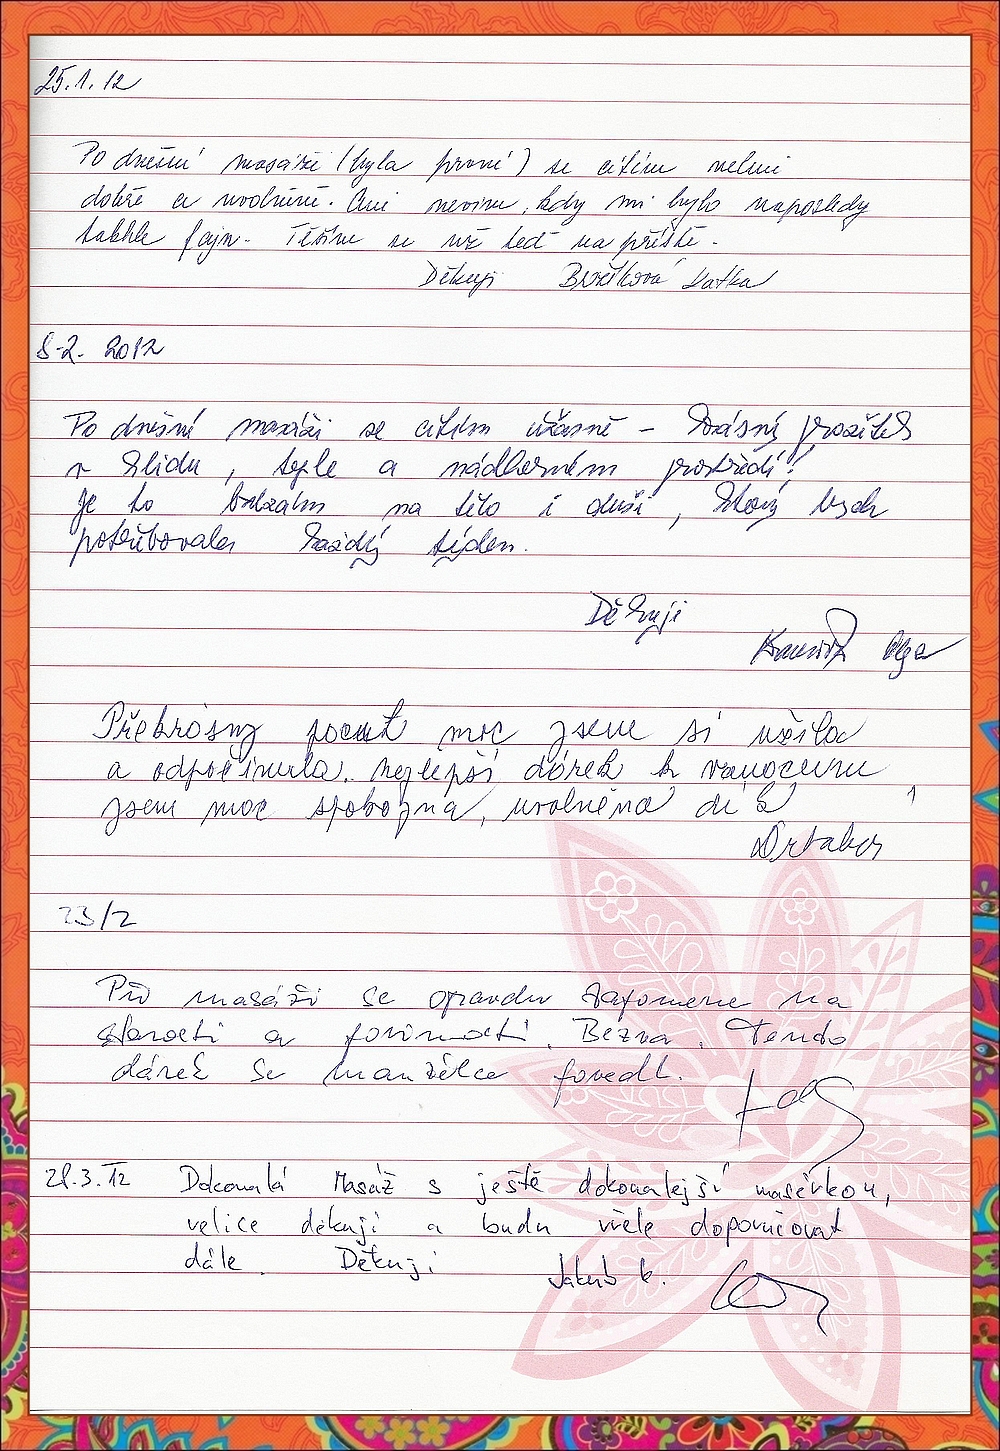 25.1.12
Po dnešní masáži (byla první) se cítím velmi
dobře a uvolněně. Ani nevím, kdy mi bylo naposledy
takhle fajn. Těším se už teď na příště.
Děkuji Katka
8.2. 2012
Po dnešní masáži se cítím úžasně – krásný prožitek
v klidu, teple a nádherném prostředí!
Je to balzám na tělo i duši, který bych
potřebovala každý týden.
Děkuji
Olga
Překrásný pocit moc jsem si užila
a odpočinula. Nejlepší dárek k vánocům
jsem moc spokojna, uvolněna dík
23/2
Při masáži se opravdu zapomene na
starosti a povinnosti. Bezva. Tento
dárek se manželce povedl.
28.3.12 Dokonalá Masáž s ještě dokonalejší masérkou,
velice děkuji a budu vřele doporučovat
dále. Děkuji Jakub K.